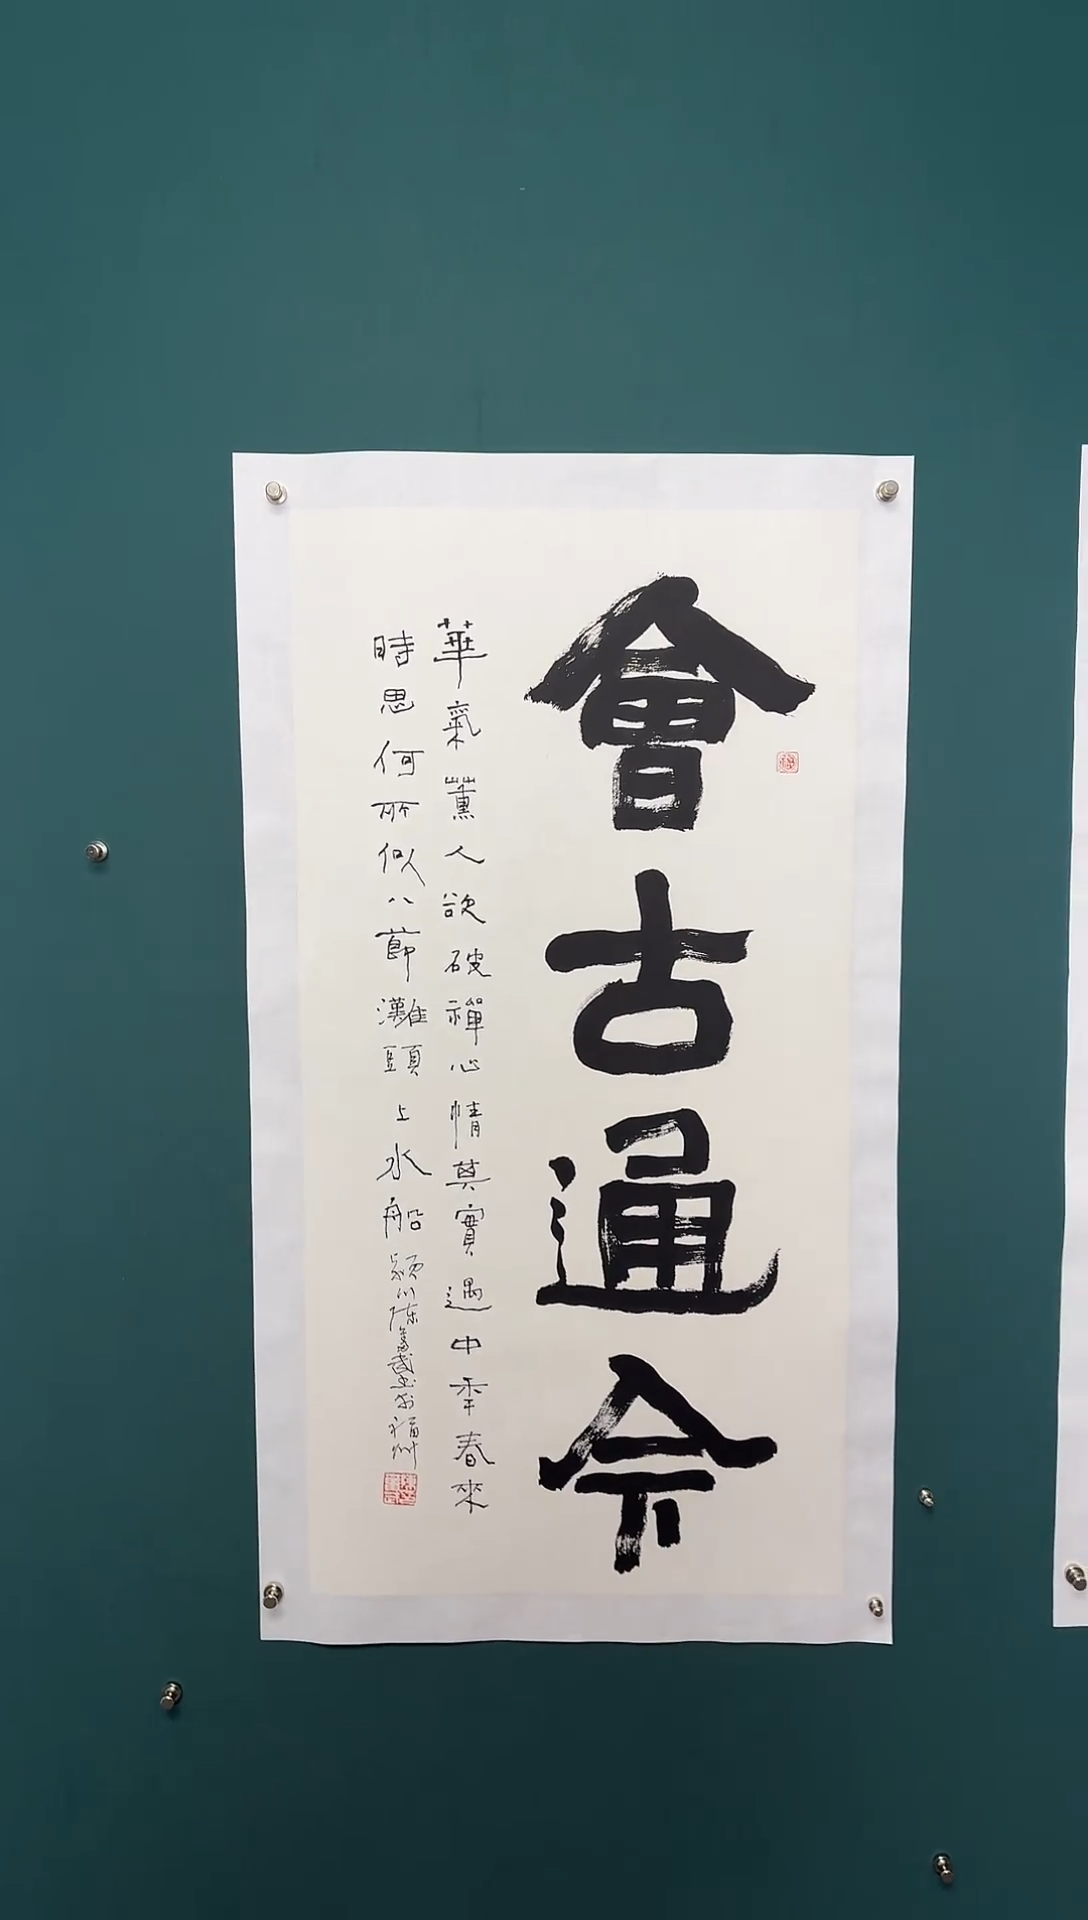 會古通今
華氣薰人欲破禪心情其實過中年春來
時思何所似八節灘頭上水船潁川陳
書於福州